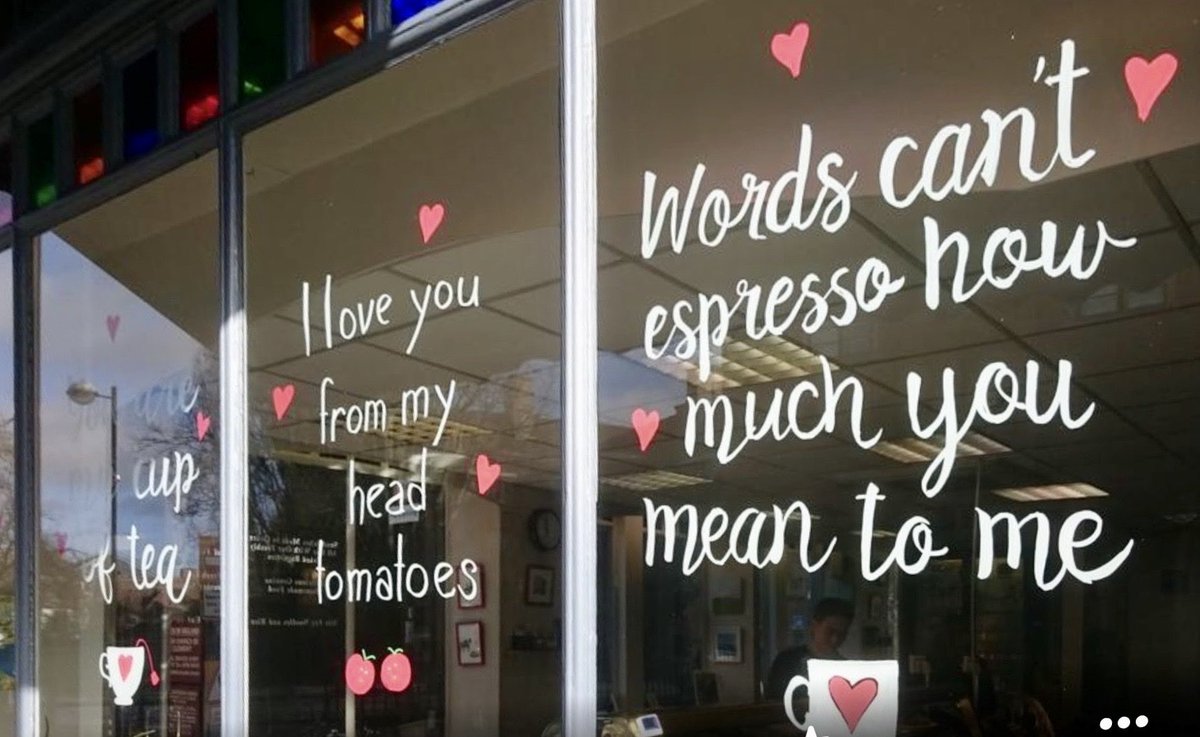 are
cup
of tea
I love you
from my
head
tomatoes
Words can't
espresso how
much you
mean to me